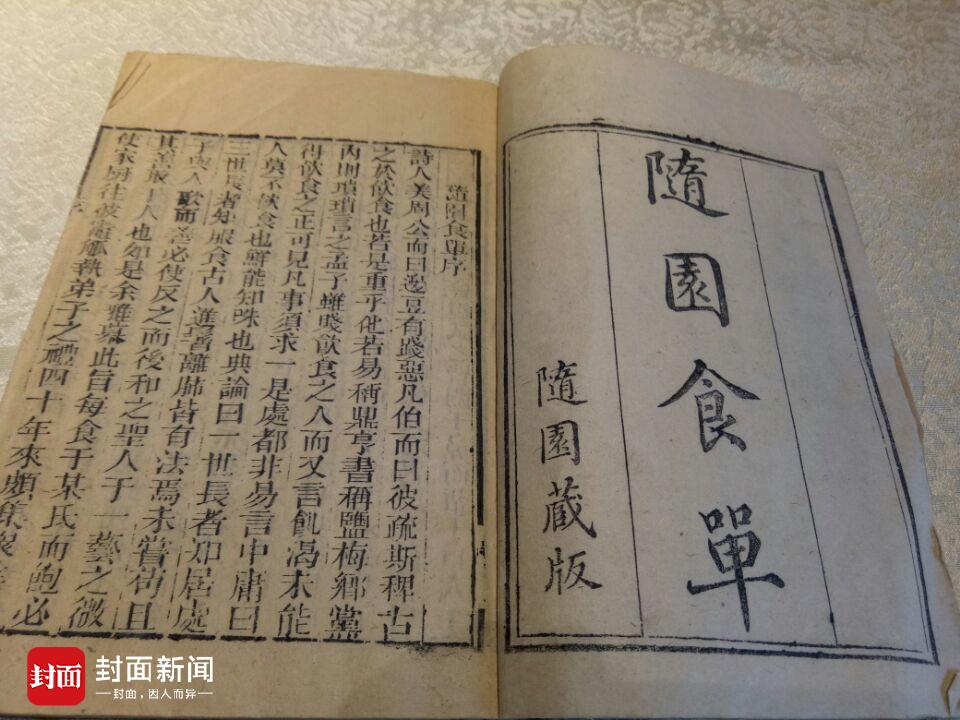 隨園食單
隨園藏版
隨園食單序
詩人美周公而曰籩豆有踐惡凡伯而曰彼疏斯稗古
之於飲食也若是重乎他若易稱鼎亨書稱鹽梅鄉黨
內則瑣瑣言之孟子雖賤飲食之人而又言飢渴未能
得飲食之正可見凡事須求一是處都非易言中庸曰
人莫不飲食也鮮能知味也典論曰一世長者知居處
三世長者知服食古人進鬐離肺皆有法焉未嘗苟且
子與人歌而善必使反之而後和之聖人于一藝之微
其善取于人也如是余雅慕此旨每食于某氏而飽必
使家廚往彼灶觚執弟子之禮四十年來頗集衆
封面
封面新闻
封面，因人而异